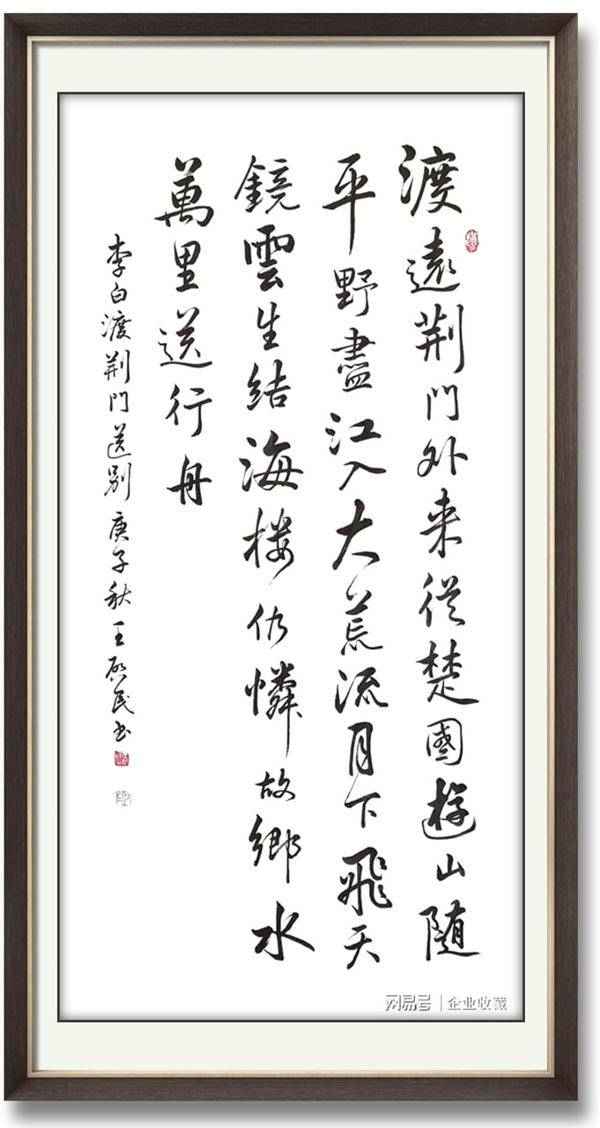 渡遠荆門外来從楚國遊山随
平野盡江入大荒流月下飛天
鏡雲生结海楼仍憐故鄉水
萬里送行舟
李白渡荆門送别 庚子秋 王民书
网易号 | 企业收藏